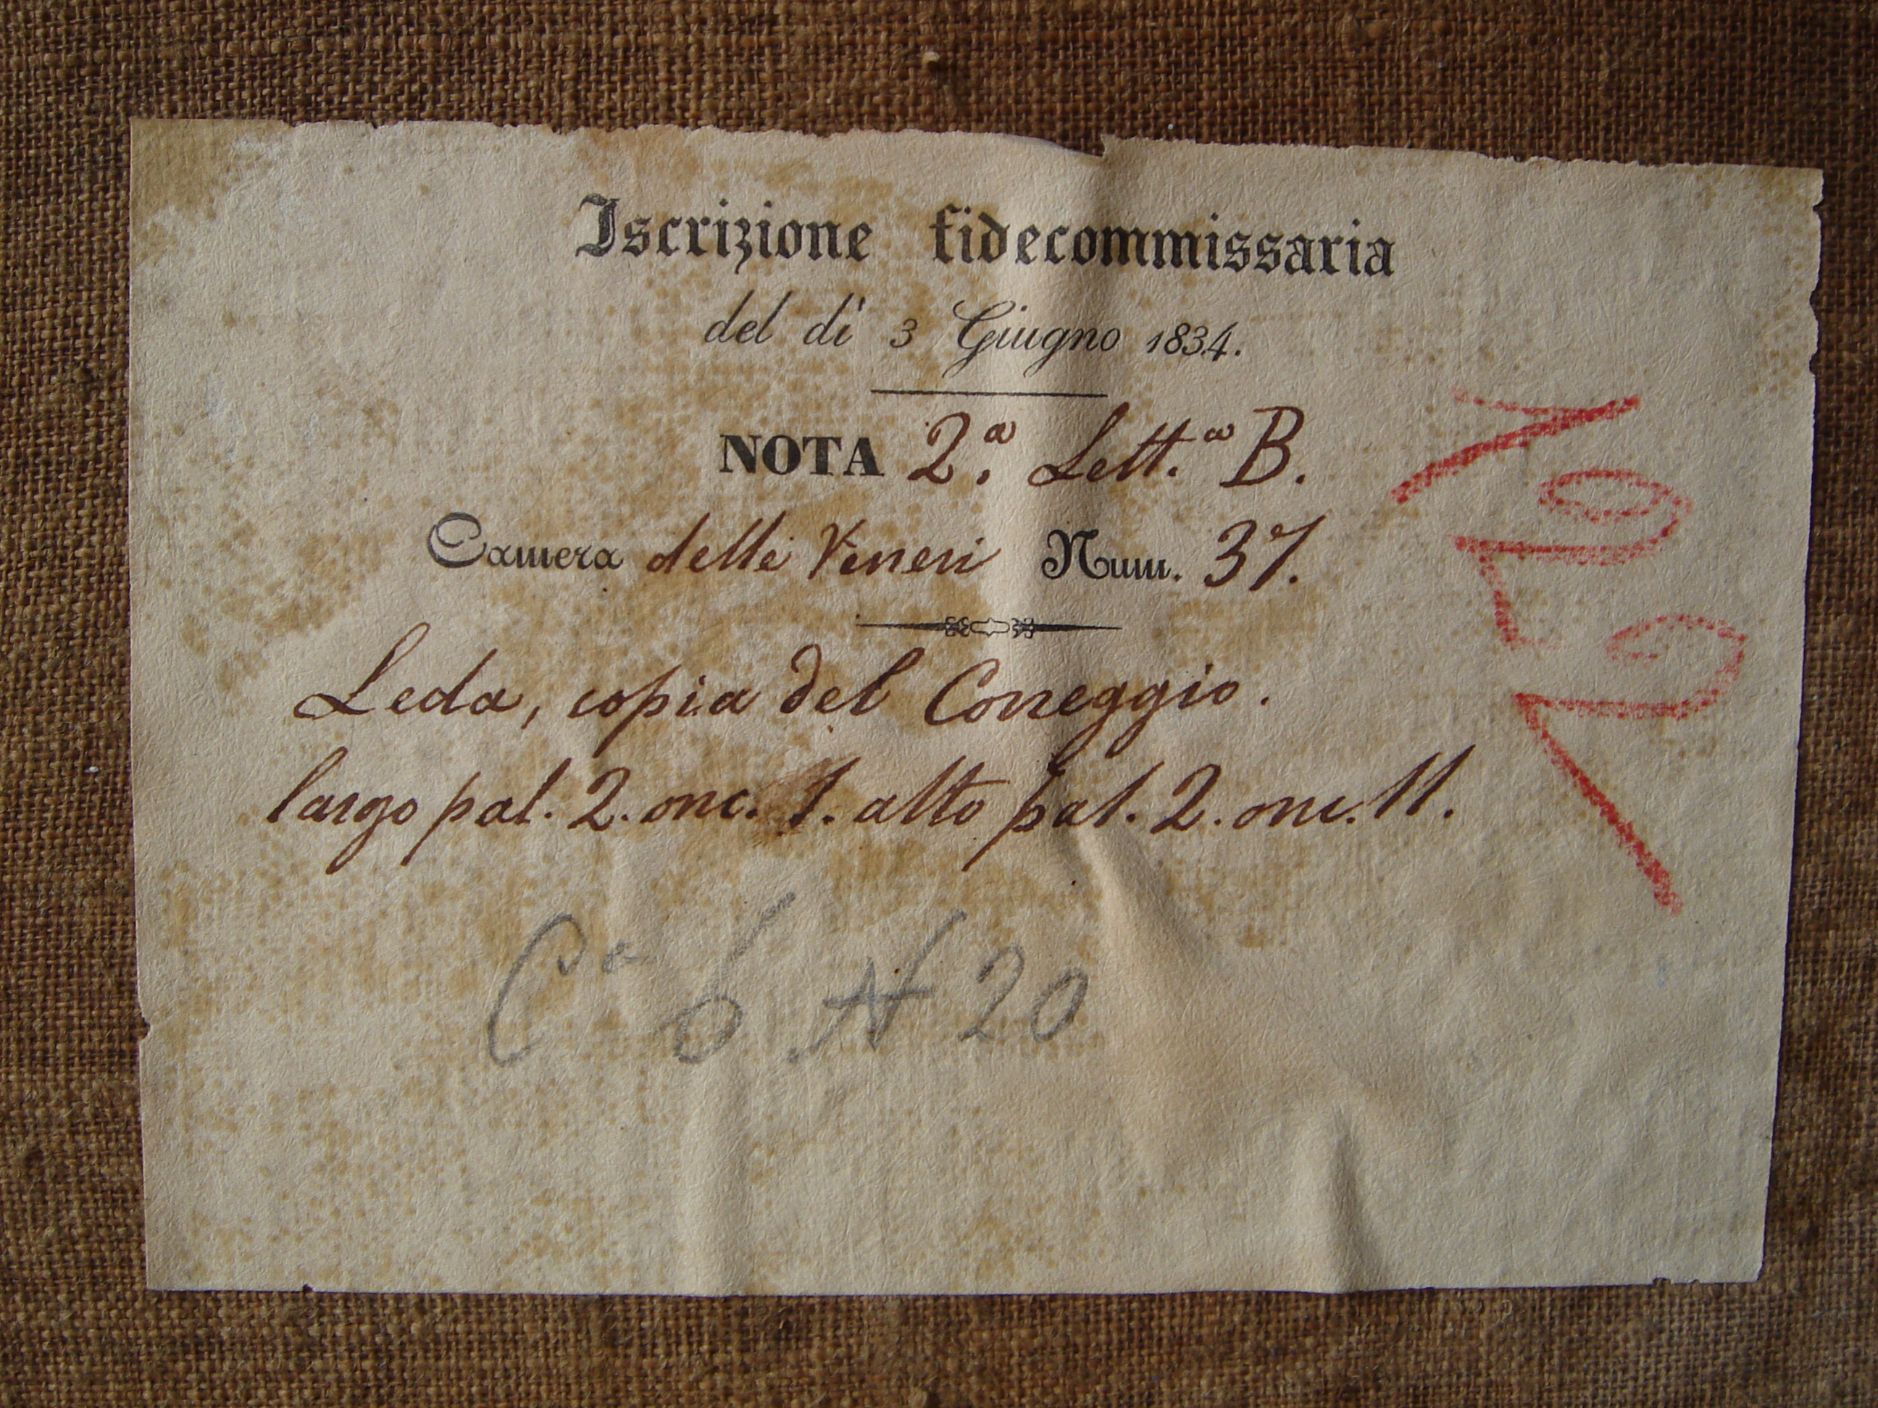 Iscrizione fidecommissaria
del dì 3 Giugno 1834.
NOTA 2.ª Lett.ª B.
Camera delle Veneri Num. 37.
Leda, copia del Correggio.
largo pal. 2. onc. 1. alto pal. 2. onc. 11.
Cª 6 N 20